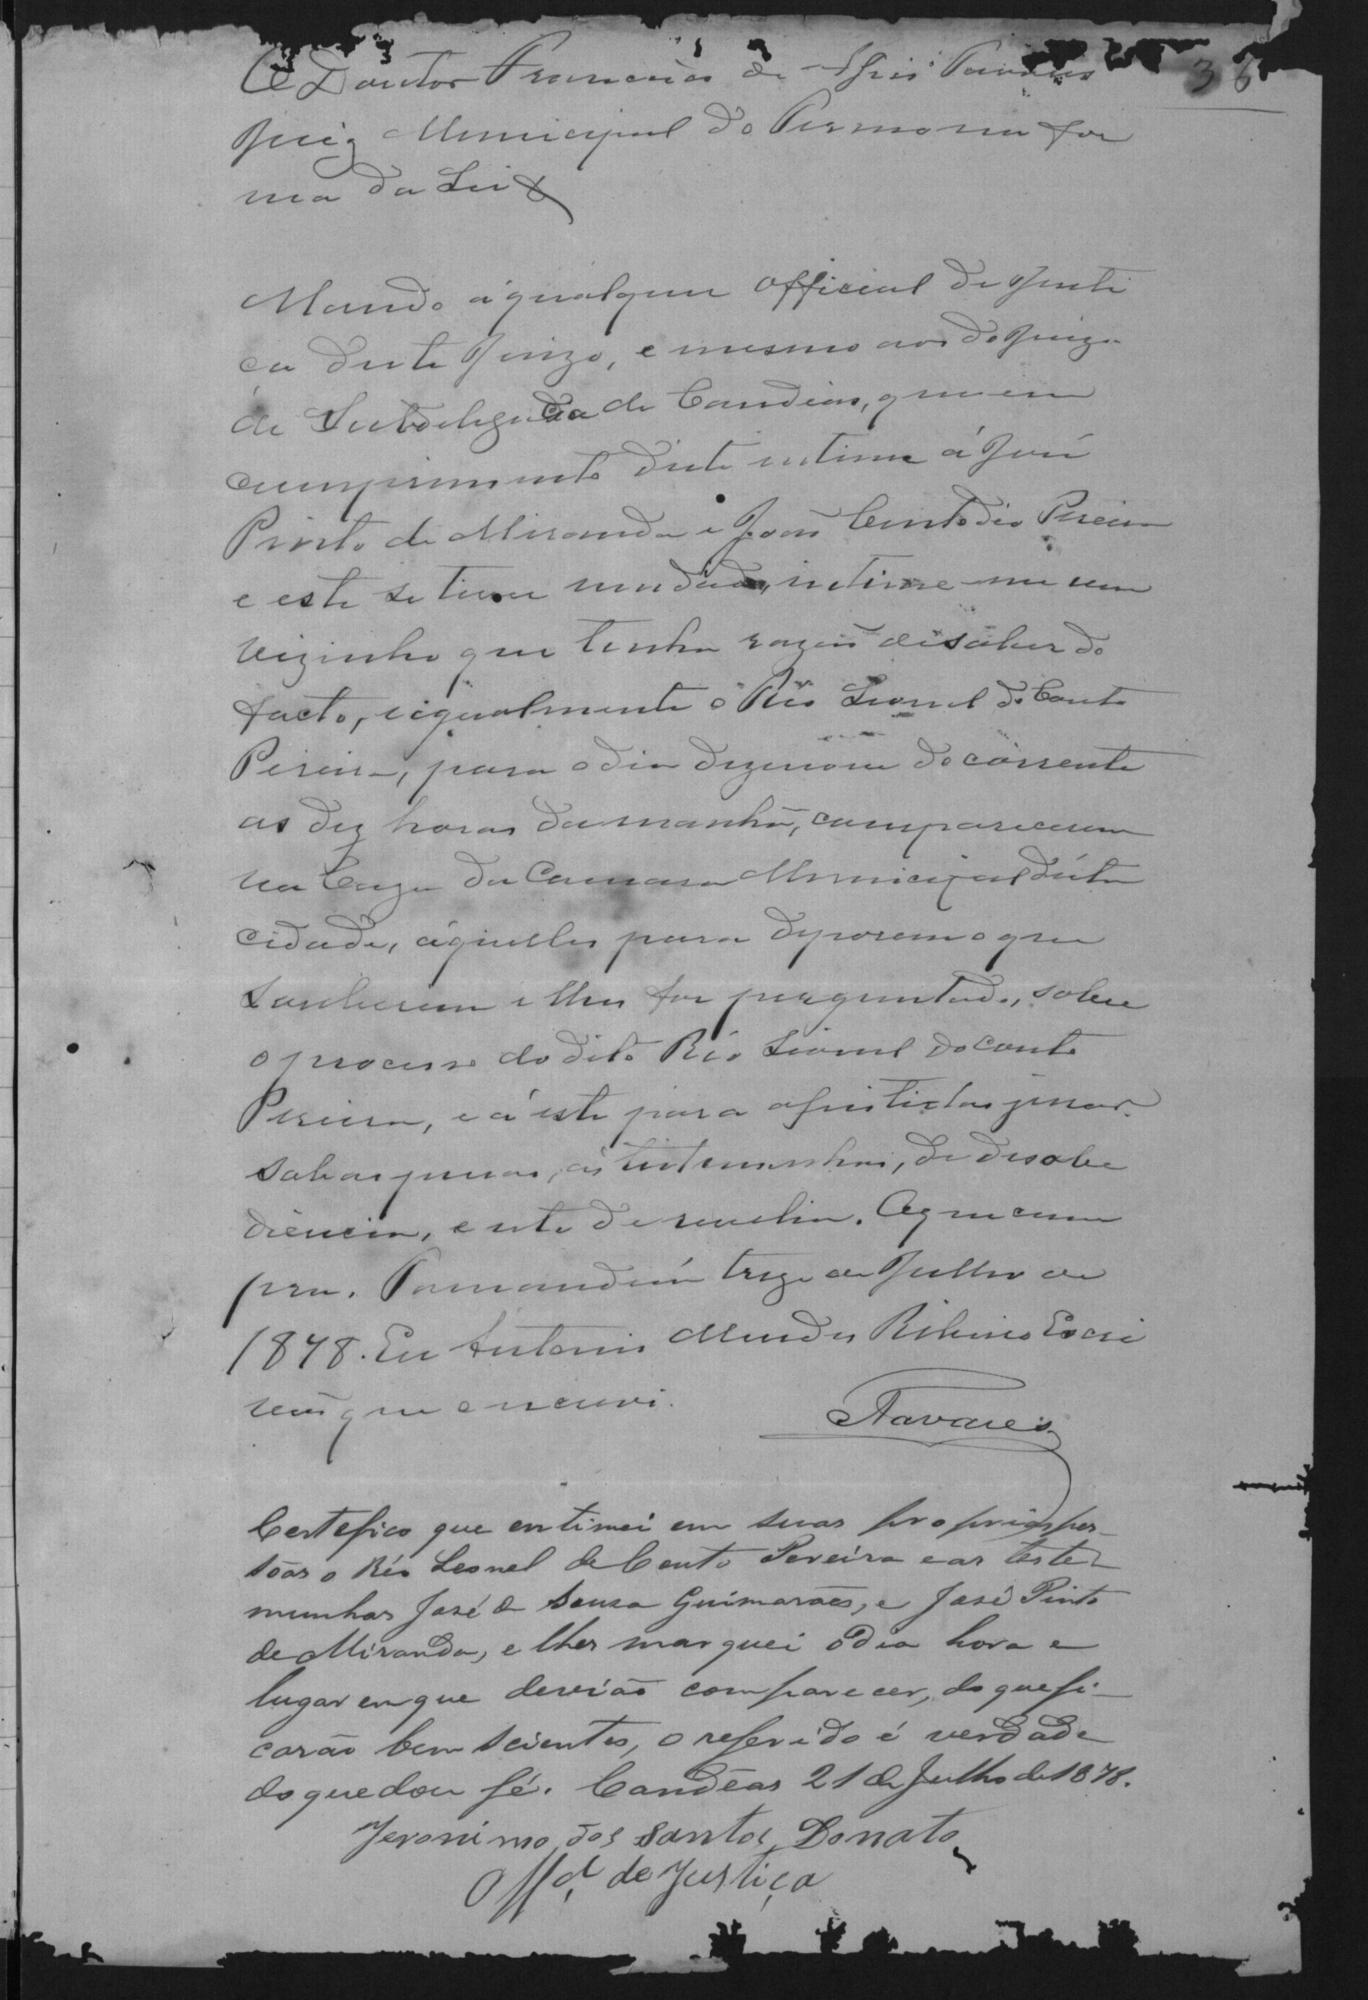 O Doutor Francisco de Assis Tavares 36
Juiz Municipal do Termo na for
ma da Lei &
Mando a qualquer official de Justi
ca deste Juizo, e mesmo aos do Juizo
de Subdelegacia de Candeias, que em
cumprimento deste intime á José
Pinto de Miranda e João Custodio Pereira
e este se tiver mudado, intime-me um
vizinho que tenha razão de saber do
facto, e igualmente o Réo Leonel do Couto
Pereira, para o dia dezenove do corrente
as dez horas da manhã, comparecerem
na Caza da Camara Municipal désta
cidade, áquelles para deporem o que
souberem e lhes for perguntado, sobre
o processo do dito Réo Leonel do Couto
Pereira, e á este para assistir las jurar.
sob as penas, as testemunhas, de desobe
diencia, e este de revelia. O que cum
pra. Tamanduá treze de Julho de
1878. Eu Antonio Mendes Ribeiro Escri
vão que escrevi.
Tavares
Certefico que entimei em suas proprias pes-
sôas o Réo Leonel de Couto Pereira e as teste
munhas José de Souza Guimarães, e José Pinto
de Miranda, e lhes marquei o dia hora e
lugar en que devião comparecer, do que fi-
carão bem scientes, o referido é verdade
do que dou fé. Candêas 21 de Julho de 1878.
Jeronimo dos Santos Donato
Offal. de Justiça